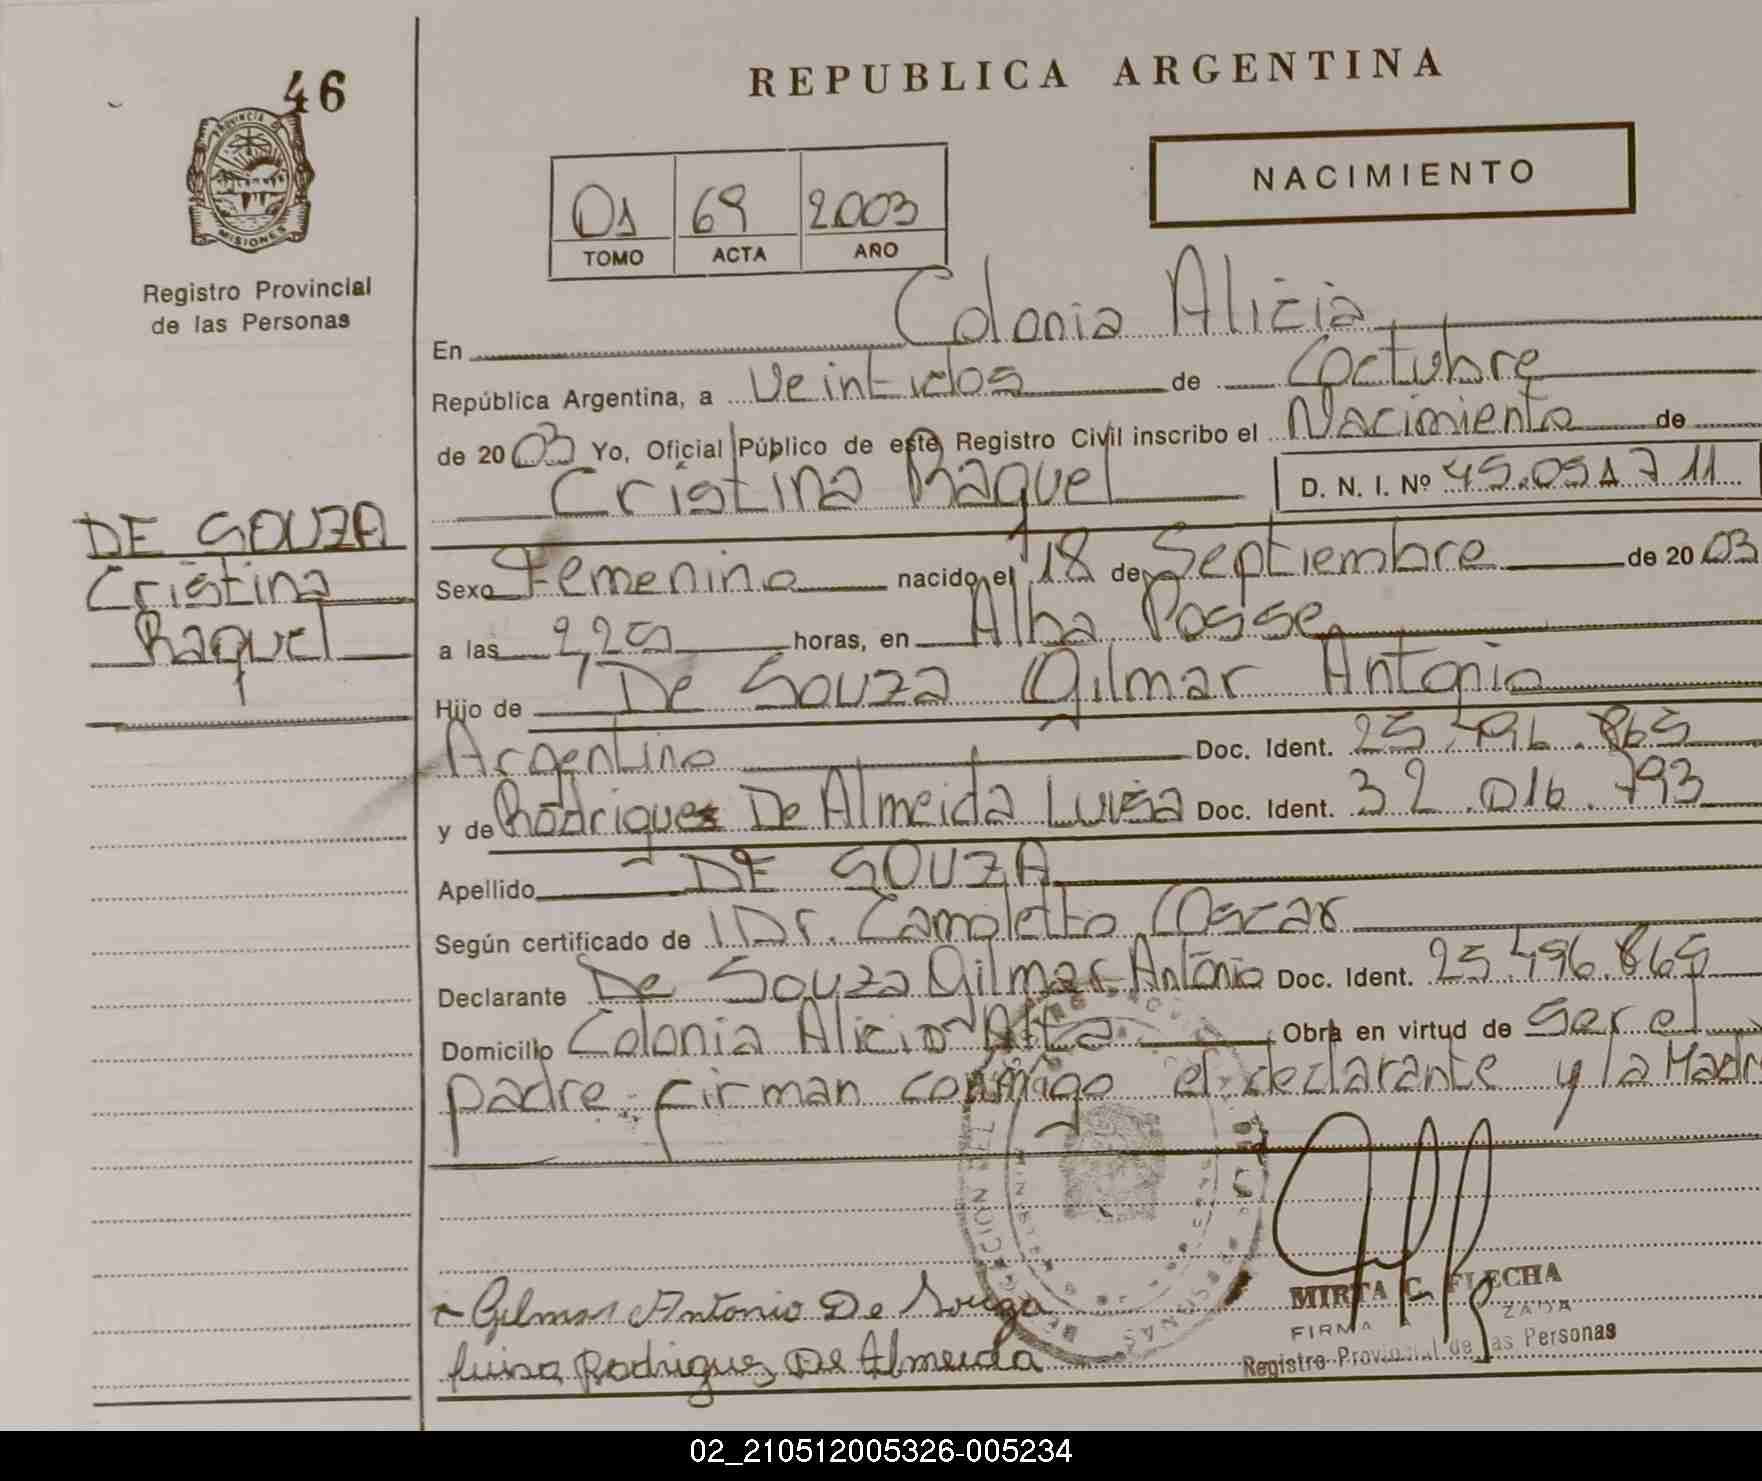 46
REPUBLICA ARGENTINA
PROVINCIA DE
MISIONES
Registro Provincial
de las Personas
01 69 2003
TOMO ACTA AÑO
NACIMIENTO
En Colonia Alicia
República Argentina, a Veintidos de Octubre
de 2003 Yo, Oficial Público de este Registro Civil inscribo el Nacimiento de
Cristina Raquel D. N. I. Nº 45.091711
DE SOUZA
Cristina
Raquel
Sexo Femenino nacido el 18 de Septiembre de 2003
a las 2,25 horas, en Alba Posse
Hijo de De Souza Gilmar Antonio
Argentino Doc. Ident. 25.496.865
y de Rodriguez De Almeida Luisa Doc. Ident. 32.016.793
Apellido DE SOUZA
Según certificado de Dr. Camoletto Oscar
Declarante De Souza Gilmar Antonio Doc. Ident. 25.496.865
Domicilio Colonia Alicia Alta Obra en virtud de Ser el
padre. firman conmigo el declarante y la Madre
Gilmar Antonio De Souza
Luisa Rodriguez De Almeida
MIRTA C. FLECHA
FIRMA
Registro Provincial de las Personas
02_210512005326-005234